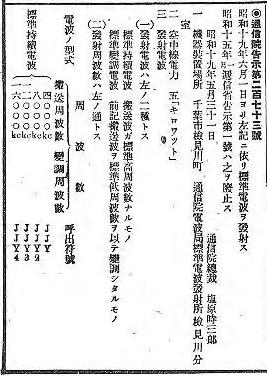 ◉通信院告示第二百七十三號
昭和十九年六月一日ヨリ左記ニ依リ標準電波ヲ發射ス
昭和十五年一月遞信省告示第一號ハ之ヲ廢止ス
昭和十九年五月三十一日
通信院總裁 塩原時三郎
一 機器裝置場所 千葉市檢見川町 通信院電波局標準電波發射所檢見川分室
二 空中線電力 五「キロワット」
三 發射電波
(一) 發射電波ハ左ノ二種トス
標準持續電波 搬送波ガ標準高周波數ナルモノ
標準變調電波 前記搬送波ヲ標準低周波數ヲ以テ變調シタルモノ
(二) 發射周波數ハ左ノ通トス
電波ノ型式 周波數 呼出符號
搬送周波數 變調周波數
標準持續電波
四〇〇〇kc JJY
八〇〇〇kc JJY2
一二〇〇〇kc JJY3
一六〇〇〇kc JJY4